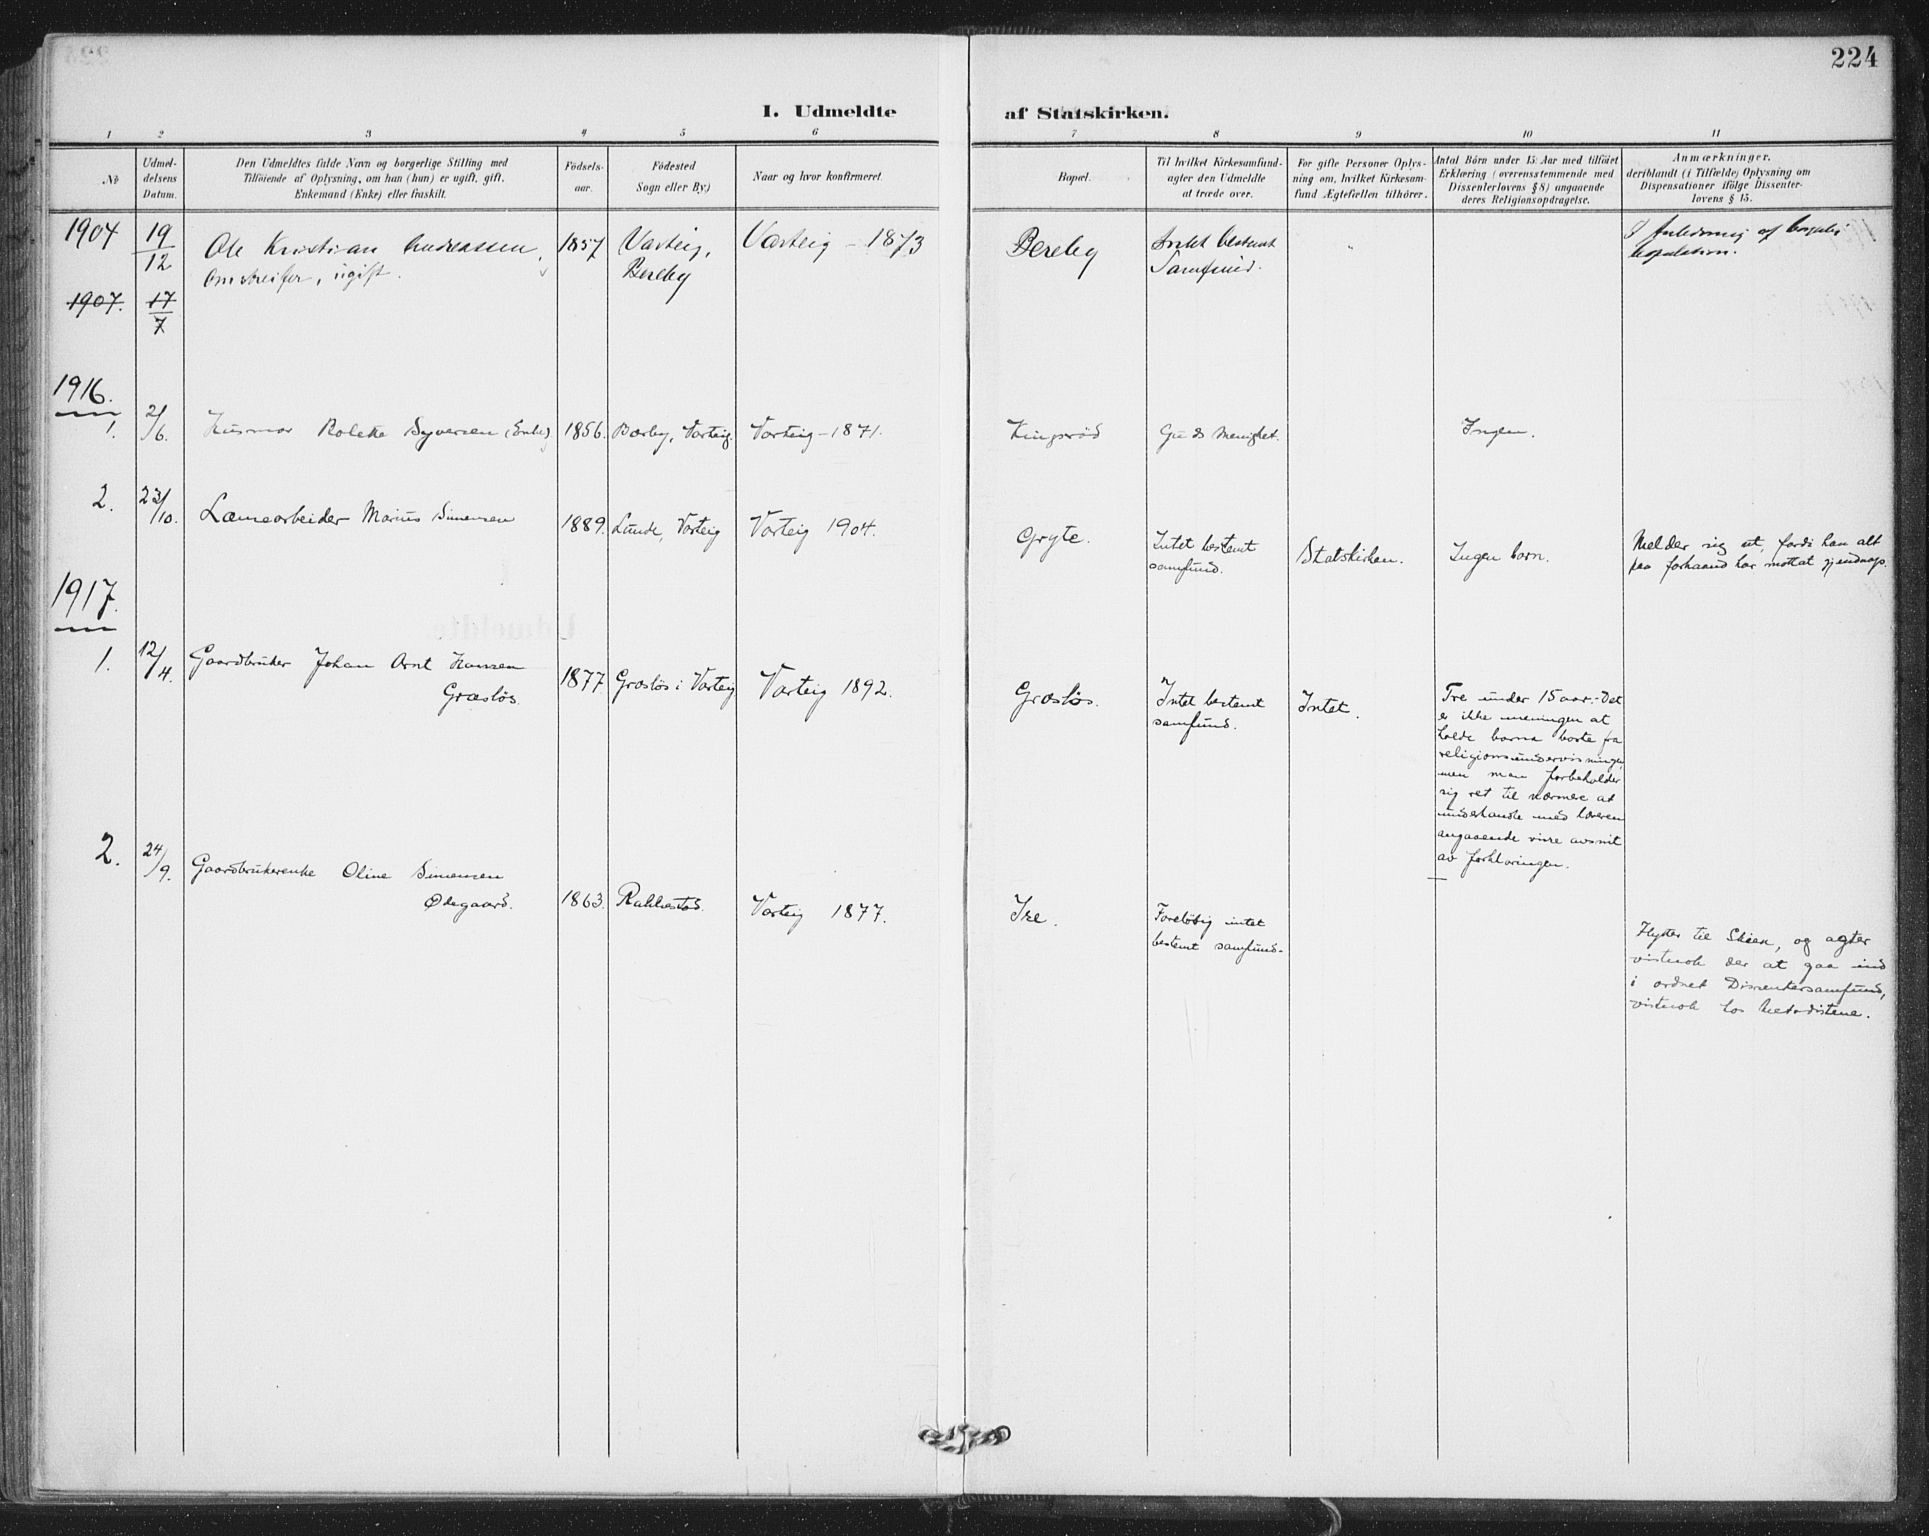 224
I. Udmeldte af Statskirken.
1 2 3 4 5 6 7 8 9 10 11
No
Udmel-
delsens
Datum.
Den Udmeldtes fulde Navn og borgerlige Stilling med
Tilföiende af Oplysning, om han (hun) er ugift, gift,
Enkemand (Enke) eller fraskilt.
Födsels-
aar.
Födested
Sogn eller By)
Naar og hvor konfirmeret.
Bopæl.
Til hvilket Kirkesamfund-
agter den Udmeldte
at træde over.
For gifte Personer Oplys-
ning om, hvilket Kirkesam-
fund Ægtefællen tilhörer.
Antal Börn under 15 Aar med tilföiet
Erklæring (overensstemmende med
Dissenterlovens § 8) angaaende
deres Religionsopdragelse.
Anmærkninger,
deriblandt (i Tilfælde) Oplysning om
Dispensationer ifölge Dissenter-
lovens § 15.
1904
19/12
Ole Kristian Andreassen,
Omstreifer, ugift.
1857
Varteig,
Bereby
Varteig - 1873
Bereby
Intet bestemt
Samfund.
"
I Anledning af borgerlig
kopulation.
1907.
17/7
1916.
1.
2/6.
Husmor Rolette Syversen (Enke)
1856.
Borby, Varteig.
Varteig - 1871.
Kingsrød
Guds Menighet.
Ingen.
2.
23/10.
Lænsearbeider Marius Simensen
1889.
Lunde, Varteig
Varteig 1904.
Gryte.
Intet bestemt
samfund.
Statskirken.
Ingen barn.
Melder sig ut, fordi han alt
paa forhaand har mottat gjendaap.
1917.
1.
12/4.
Gaardbruker Johan Arnt Hansen
Græsløs.
1877
Græsløs i Varteig
Varteig 1892.
Græsløs.
Intet bestemt
samfund.
Intet.
Tre under 15 aar. - Det
er ikke meningen at
holde barna borte fra
religionsundervisningen,
men man forbeholder
sig ret til nærmere at
underhandle med læreren
angaaende visse avsnit
av forklaringen.
2.
24/9.
Gaardbrukerenke Oline Simensen
Ødegaard.
1863.
Rakkestad.
Varteig 1877.
Ise.
Foreløbig intet
bestemt samfund.
Flytter til Skien, og agter
vistnok der at gaa ind
i ordnet Dissentersamfund,
vistnok hos Metodistene.